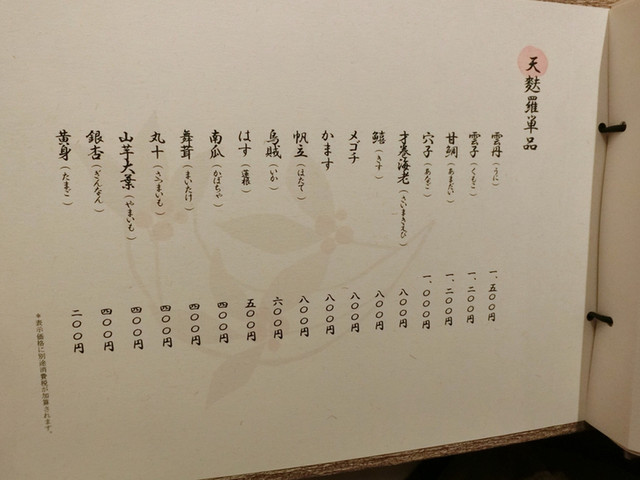 天麩羅単品
雲丹(うに) 一、五〇〇円
雲子(くもこ) 一、二〇〇円
甘鯛(あまだい) 一、二〇〇円
穴子(あなご) 一、〇〇〇円
才巻海老(さいまきえび) 八〇〇円
鱚(きす) 八〇〇円
メゴチ 八〇〇円
かます 八〇〇円
帆立(ほたて) 八〇〇円
烏賊(いか) 六〇〇円
はす(蓮根) 五〇〇円
南瓜(かぼちゃ) 四〇〇円
舞茸(まいたけ) 四〇〇円
丸十(さつまいも) 四〇〇円
山芋大葉(やまいも) 四〇〇円
銀杏(ぎんなん) 四〇〇円
黄身(たまご) 二〇〇円
*表示価格に別途消費税が加算されます。